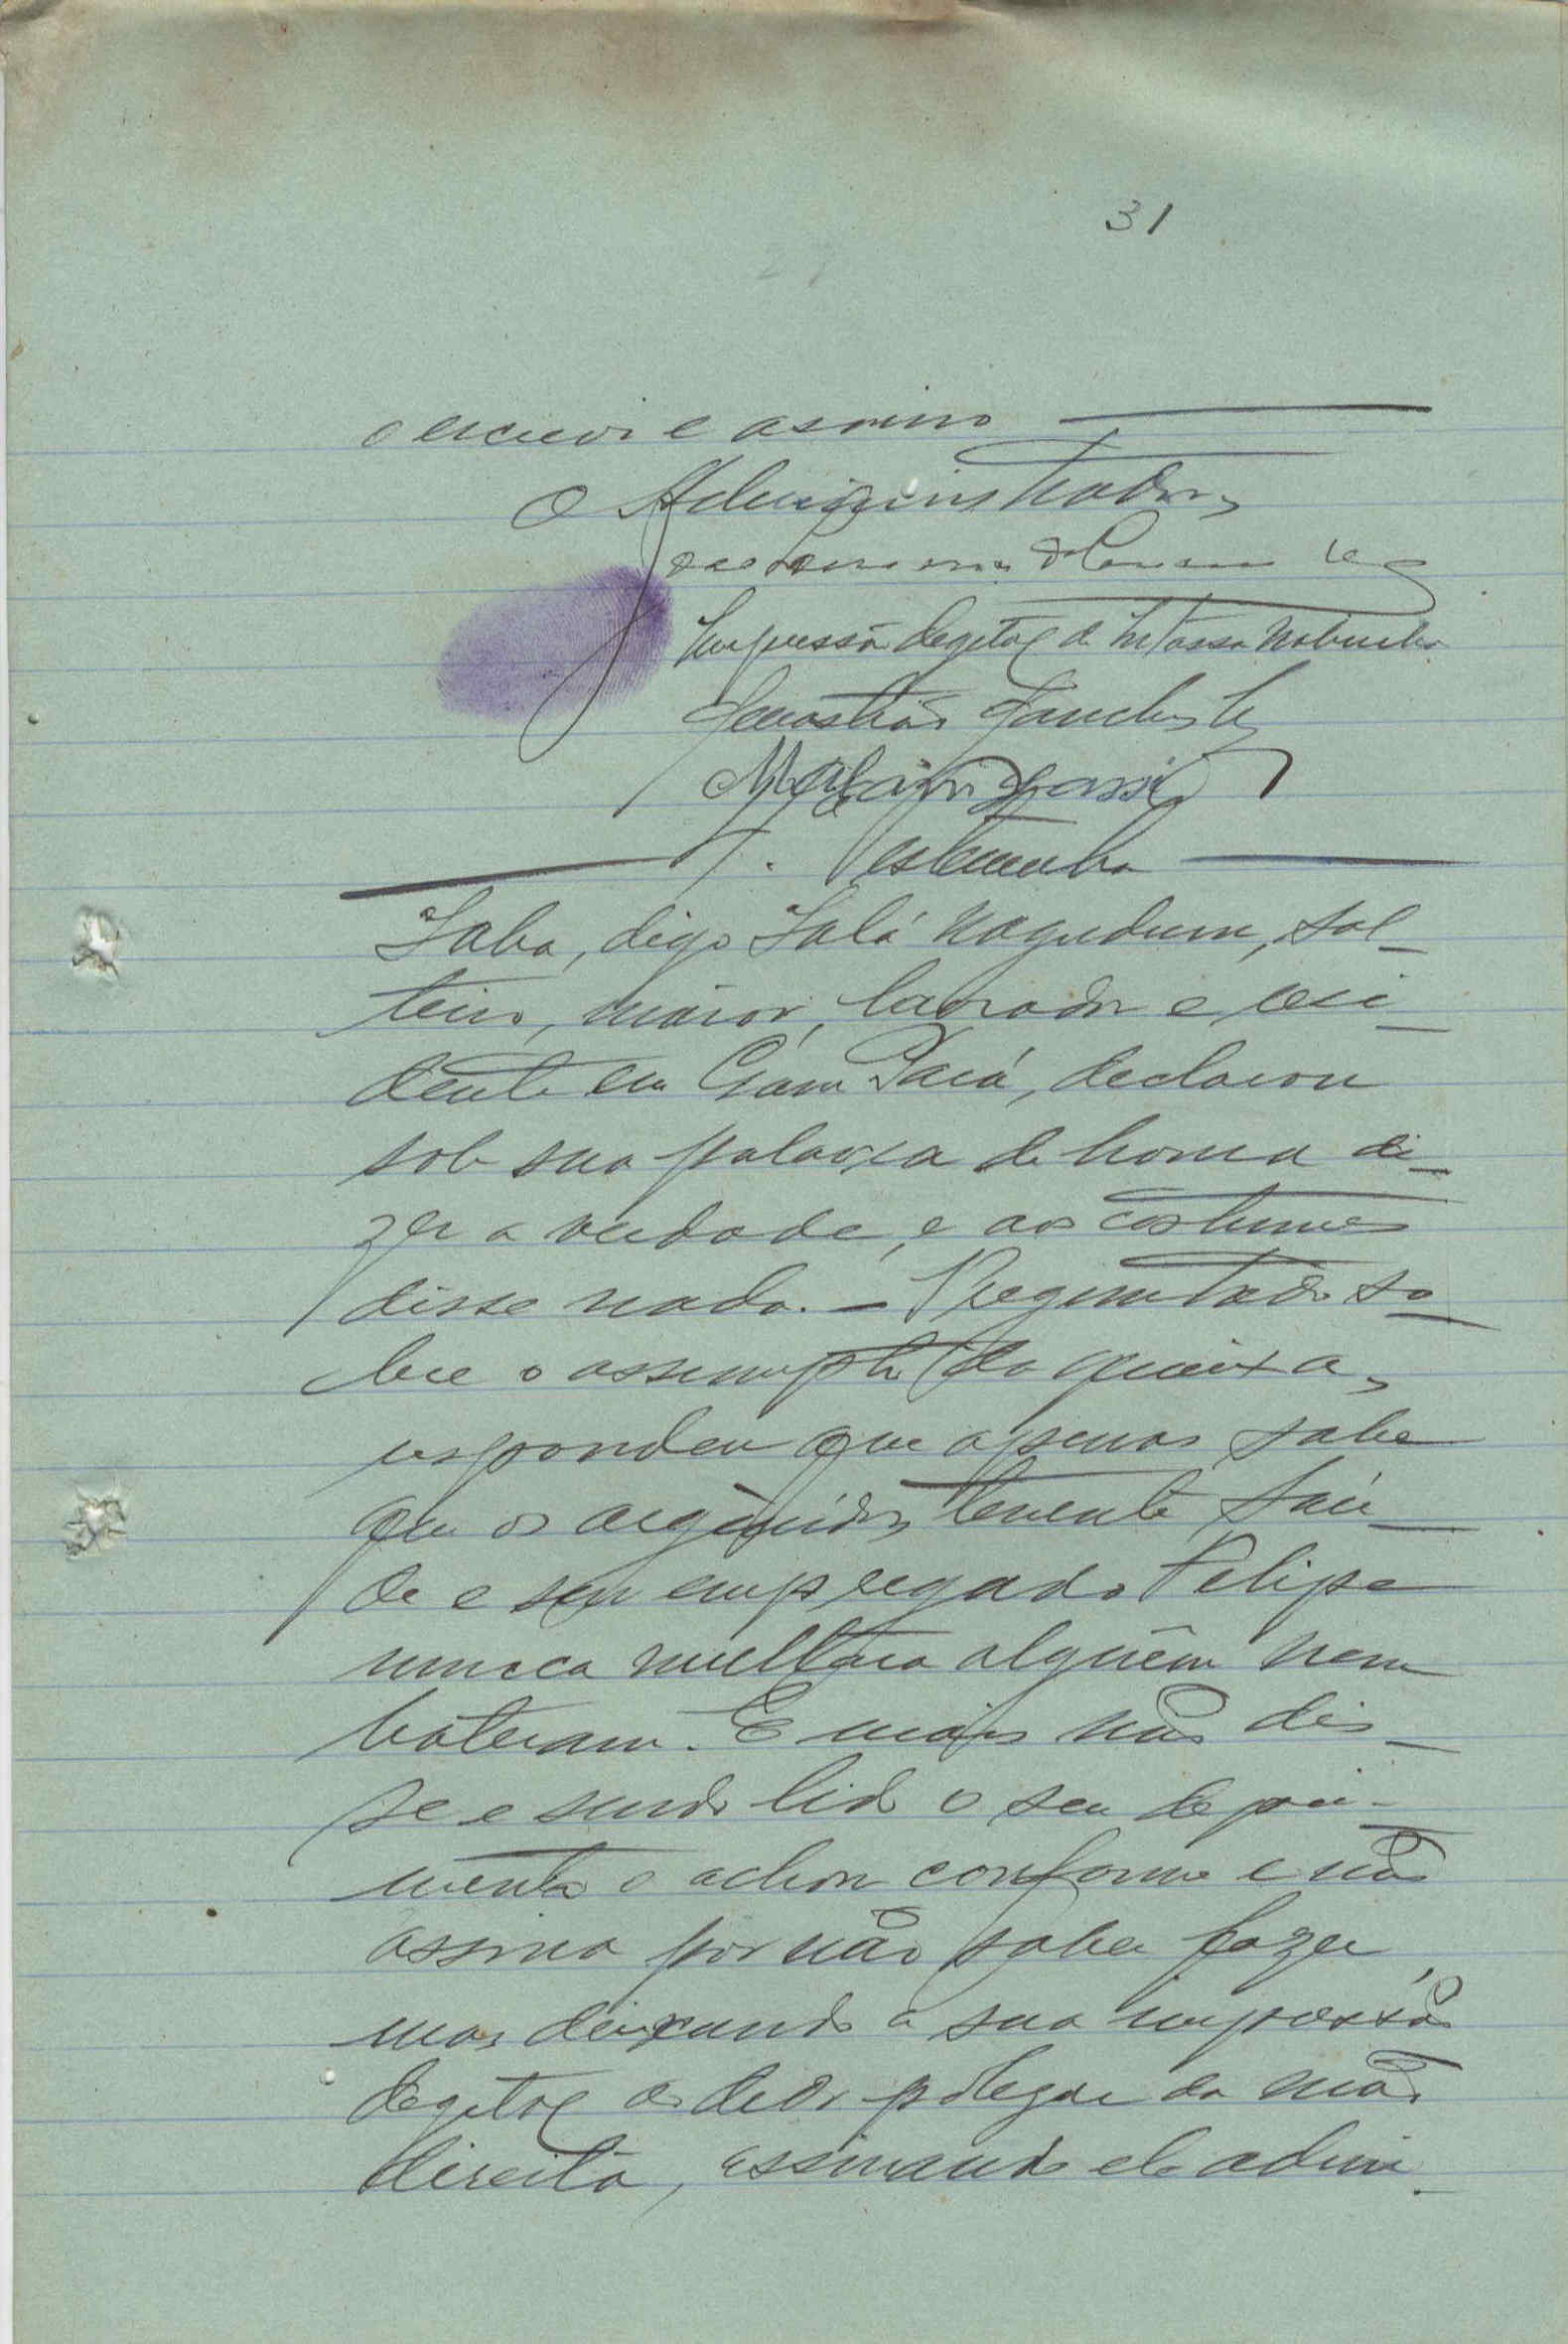 31
o escrevi e assino
O Administrador,
Impressão degital de
Sebastião Sanches
7. Testemunha
Saba, digo Salá Nagudum, sol-
teiro, máior, lavrador e resi-
dente em Gam Pará, declarou
sob sua palavra de honra di-
zer a verdade, e aos costumes
disse nada. — Preguntado so-
bre o assumpto da queixa,
respondeu que apenas sabe
que os argùidos, tenente Saú-
de e seu empregado Felipe
nunca multara alguêm nem
bateram. E mais não dis-
se e sendo lido o seu depoi-
mento o achou conforme e não
assina por não saber fazer,
mas deixando a sua impressão
degital do dedo polegar da mão
direita, assinando ele admi-